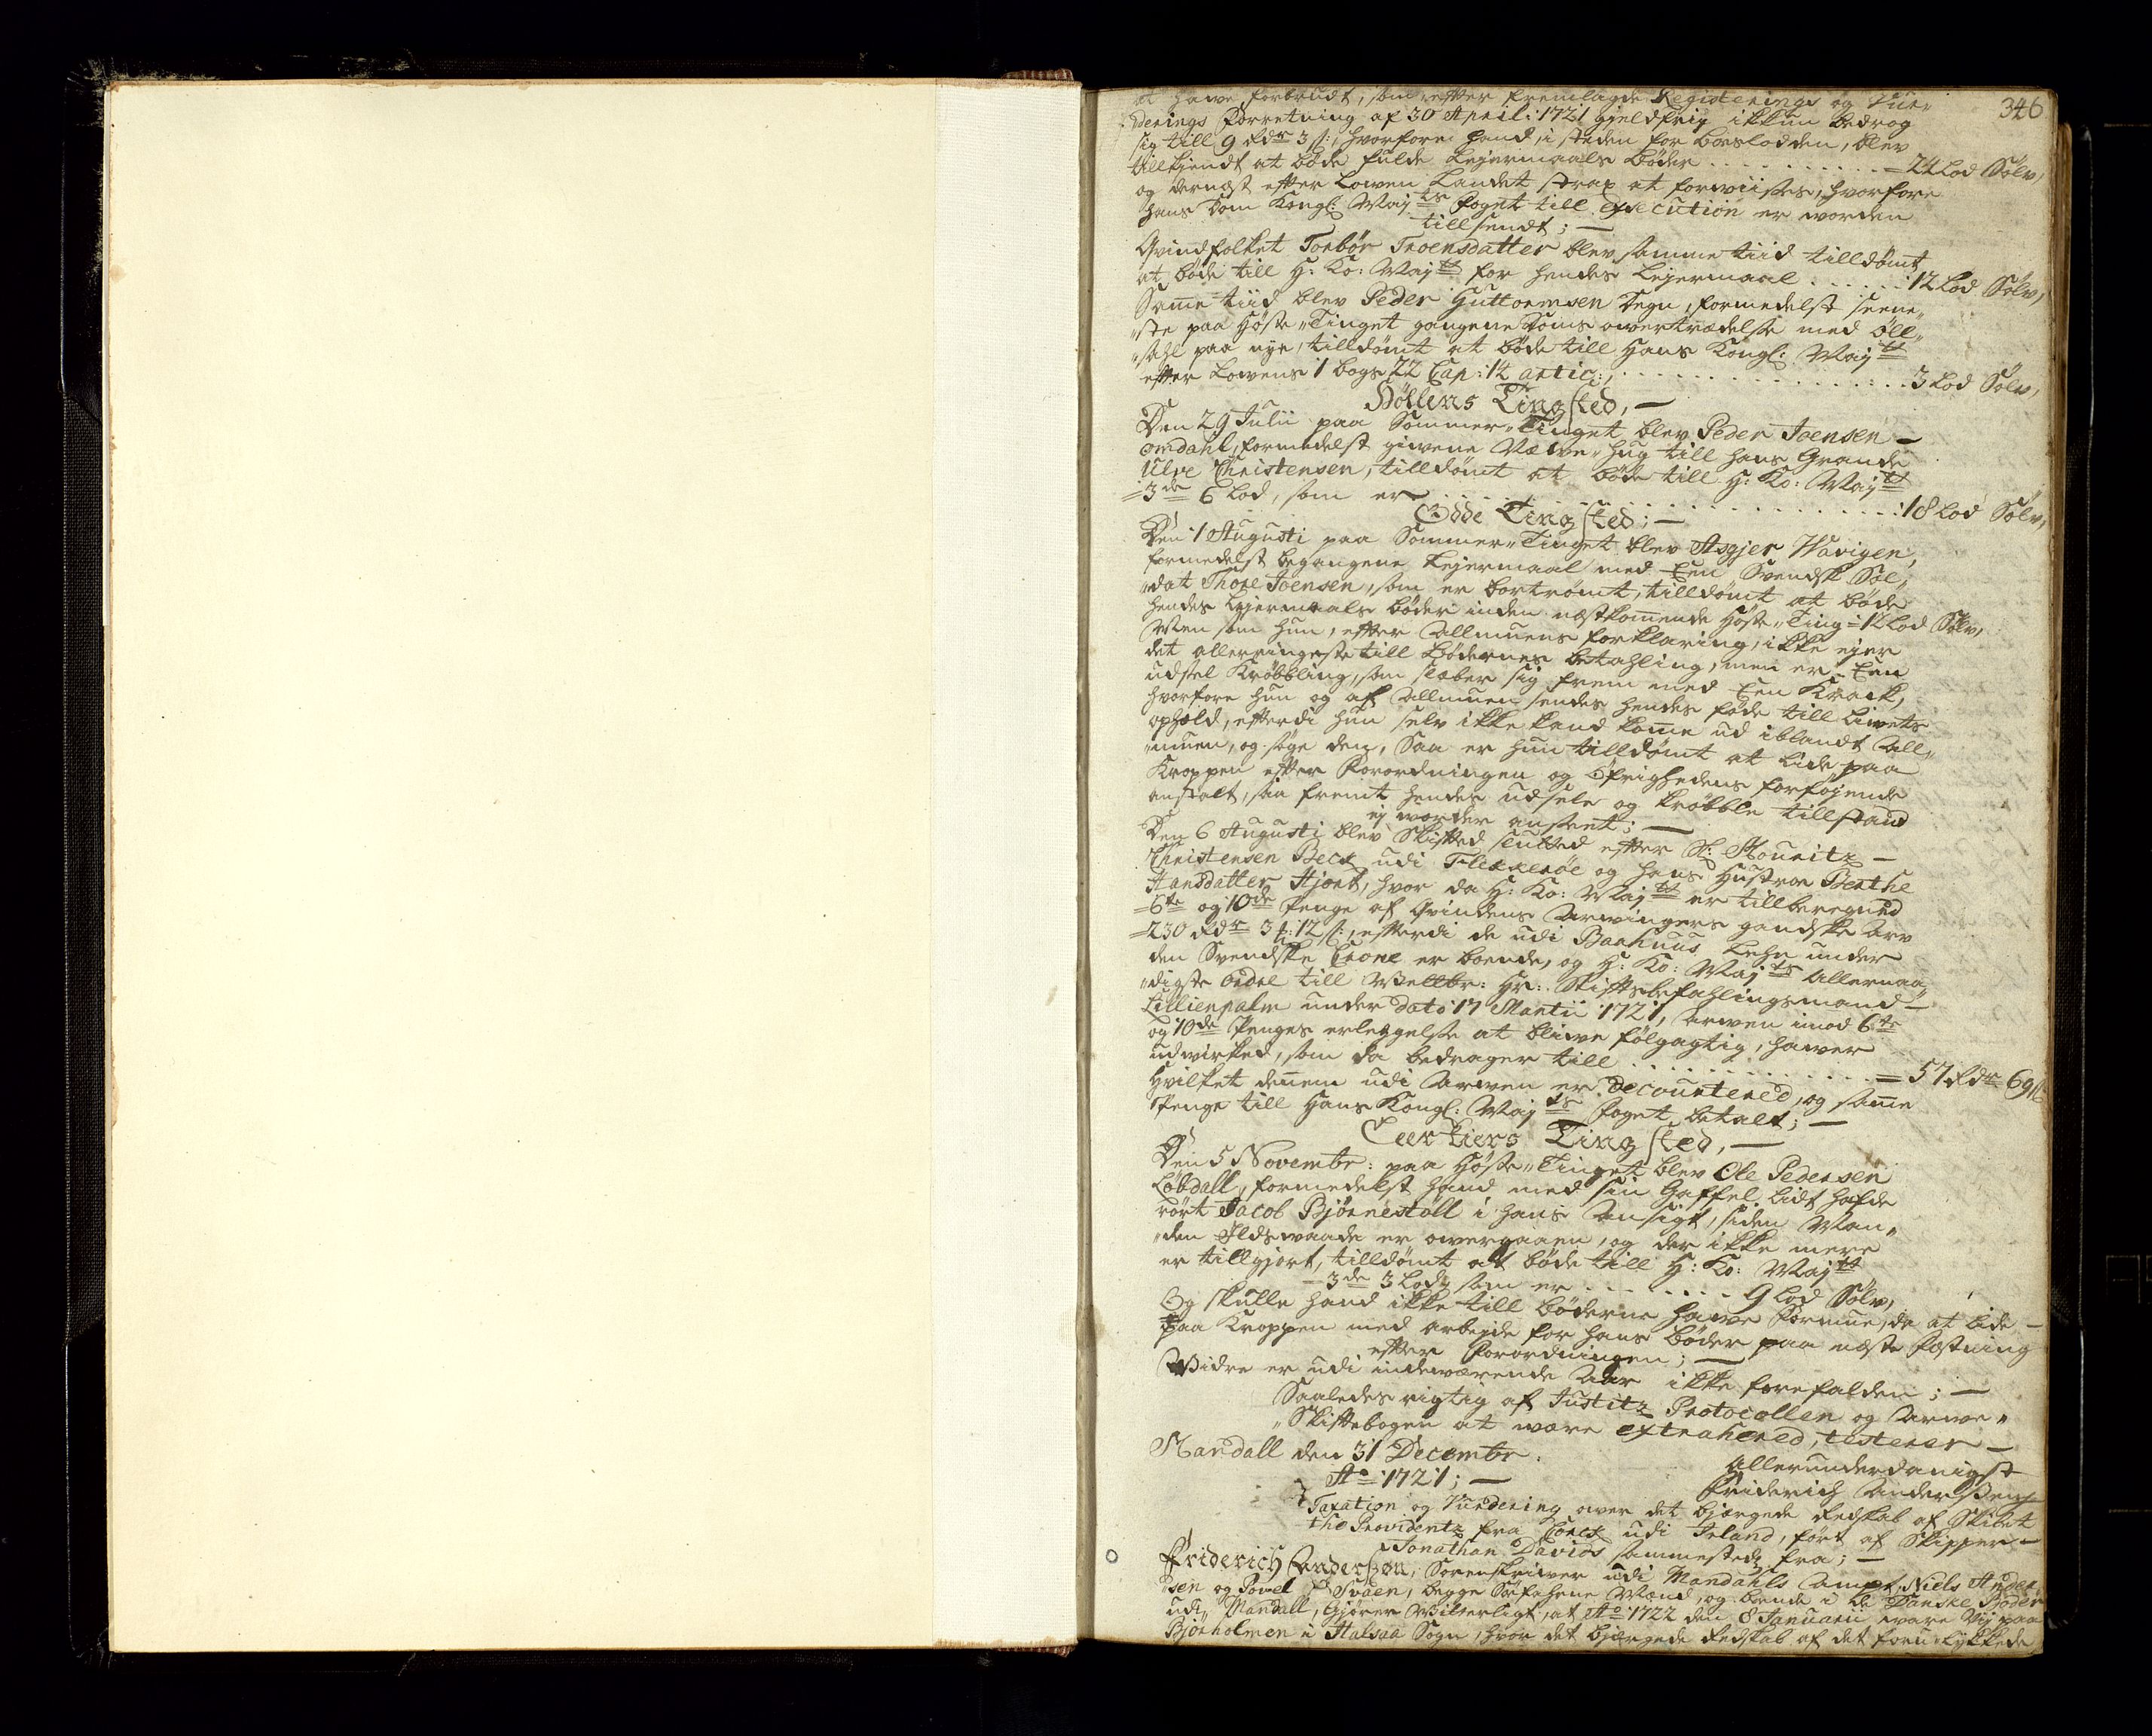 346
at hawe forbrudt, som efter fremlagde Registerings og Vur„
„derings Forretning af 30 Aprili 1721 gjeldfrig ikkun bedrog
sig till 9 Rdr 3 s:, hvorfore hand, i steden for boeslodden, blev
tillkiendt at bøde fulde Lejermaals bøder . . . . . . . . . . = 24 Lod Sølv,
og dernest efter Lowen Landet strax at forwiistes, hvorfore
hans Dom Kongl: Maj:ts foget till execution er worden
tillsendt; —
Qvindfolket Torbør Troensdatter blev samme tiid tilldømt
at bøde till H: Ko: Maj:tt for hendes Lejermaal . . . . . . 12 Lod Sølv,
Same tiid blev Peder Guttormsen Degn, formedelst seene„
„ste paa Høste„Tinget gangene Doms owertrædelse med øll„
„sahl paa nye, tilldømt at bøde till Hans Kongl: Maj:tt
efter Lowens 1 bogs 22 Cap: 14 artic:, . . . . . . . . . . . . 3 Lod Sølv,
Høllens Tingsted, —
Den 29 Julii paa Sommer„Tinget blev Peder Joensen —
omdahl, formedelst giwene Næwe„hug till hans Grande
Ulve Christensen, tilldømt at bøde till H: Ko: Maj:tt
= 3de 6 Lod, som er . . . . . . . . . . . . . . . . . . 18 Lod Sølv,
Odde Tingsted; —
Den 1 Augusti paa Sommer„Tinget blev Asgjer Haavigen,
formedelst begangene Lejermaal med Een Svendsk Sol„
„dat Thore Joensen, som er bortrømt, tilldømt at bøde
hendes Lejermaals bøder inden nestkomende Høste„Ting = 12 Lod Sølv,
Men som hun, efter Allmuens forklaring, ikke ejer
det allerringeste till Bødernes betahling, men er Een
udsel Krøbbling, som slæber sig frem med Een Krack,
hvorfore hun og af Allmuen sendes hendes føde till Liwets
ophold, efterdi hun selv ikke kand kome ud iblandt All„
„muen, og søge den, Saa er hun tilldømt at lide paa
Kroppen efter Forordningen og Øfrighedens forføjende
anstalt, saa fremt hendes udsele og krøbble tillstand
ej worder anseet; —
Den 6 Augusti blev Skifted slutted efter Sl: Mouritz —
Christensen Beck udi Flekkerøe og hans Hustroe Berthe
Hansdatter Hjort, hvor da H: Ko: Maj:tt er tillberegned
= 6te og 10de Penge af Qvindens Arwingers gandske Arv
= 230 Rdr 3 # 12 s:, efterdi de udi Baahuus Lehn under
den Svendske Crone er boende, og H: Ko: Maj:ts Allernaa„
„digste ordre till Wellbr: Hr: Stiftsbefahlingsmand —
Lillienpalm under dato 17 Martii 1721, Arwen imod 6te
og 10de Penges erleggelse at bliwe følgagtig, hawer
udwirked, som da bedrager till . . . . . . . . . . . . = 57 Rdr 69 s
Hvilket dennem udi Arwen er decourtered, og same
Penge till Hans Kongl: Maj:ts foget betalt; —
Eertiers Tingsted, —
Den 5 Novembr: paa Høste„Tinget blev Ole Pedersen
Løbdall, formedelst hand med sin Gaffel lidt hafde
rørt Jacob Bjørnestøll i hans Ansigt, siden Man„
„den Ildswaade er owergaaen, og der ikke mere
er tillgjort, tilldømt at bøde till H: Ko: Maj:tt
= 3de 3 Lod, som er . . . . . . . 9 Lod Sølv,
Og skulle hand ikke till bøderne hawe formue, da at lide —
paa Kroppen med arbejde for hans bøder paa neste Festning
efter Forordningen; —
Widre er udi indewærende Aar ikke forefalden; —
Saaledes rigtig af Justitz Protocollen og Arwe„
„Skiftebogen at wære extrahered, testerer —
Mandall den 31 Decembr.
Ao 1721; —
Allerunderdanigst
Friderich Anderssen
Taxation og Vurdering ower det bjergede Redskab af Skibet
the Providentz fra Corck udi Irland, ført af Skipper —
Jonathan Davids sammestedz fra; —
Friderich Anderssøn, Sorenskriwer udi Mandahls Ampt, Niels Ander„
„sen og Powel Svaen, begge Søefahrne Mænd, og boende i de Danske Boder
udi Mandall, Gjører Witterligt, at Ao 1722 den 8 Januarii ware Vij paa
Bjørholmen i Halsaa Sogn, hvor det bjergede Redskab af det forulykkede